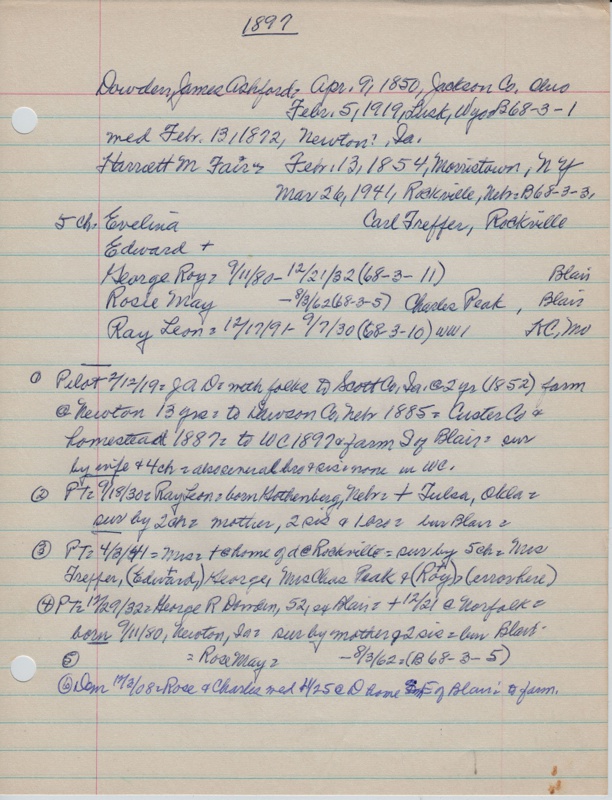 1897
Dowden, James Ashford = Apr. 9, 1850, Jackson Co, Ohio
Febr. 5, 1919, Lusk, Wyo = B68-3-1
med Febr. 13, 1872, Newton?, Ia.
Harriett M Fair = Febr. 13, 1854, Morristown, NY
Mar 26, 1941, Rockville, Nebr = B68-3-3,
5 ch = Evelina Carl Treffer, Rockville
Edward +
George Roy = 9/11/80 - 12/21/32 (68-3-11) Blair
Rosie May - 8/3/62 (68-3-5) Charles Peak, Blair
Ray Leon = 12/17/91 - 9/7/30 (68-3-10) WW1 KC, Mo
① Pilot 2/12/19 = JAD = with folks to Scott Co, Ia. @ 2 yr (1852) farm
@ Newton 13 yrs = to Dawson Co, Nebr 1885 = Custer Co &
homestead 1887 = to WC 1897 & farm S of Blair = sur
by wife & 4 ch = also several bro & sis = none in WC.
② PT = 9/18/30 = Ray Leon = born Gothenberg, Nebr = + Tulsa, Okla =
sur by 2 ch = mother, 2 sis & 1 bro = bur Blair =
③ PT = 4/3/41 = Mrs = + @ home of d @ Rockville = sur by 5 ch = Mrs
Treffer, (Edward,) George, Mrs Chas Peak & (Roy) = (error here)
④ PT = 12/29/32 = George R Dowden, 52, Blair = + 12/21 @ Norfolk =
born 9/11/80, Newton, Ia = sur by mother & 2 sis = bur Blair -
⑤ = Rose May = - 8/3/62 = (B68-3-5)
⑥ Dem 12/3/08 = Rose & Charles med 11/25 @ D home of Blair = to farm.